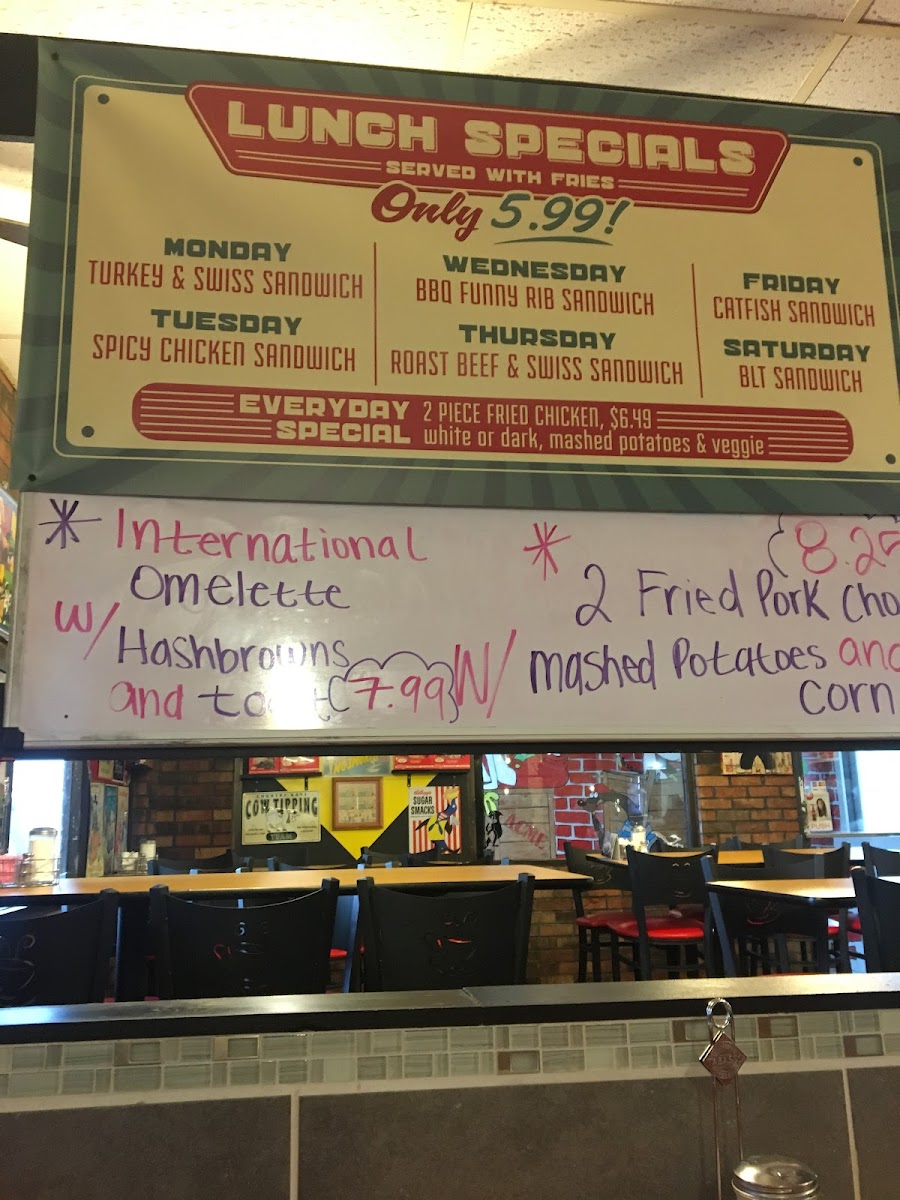 LUNCH SPECIALS
SERVED WITH FRIES
Only 5.99!
MONDAY
TURKEY & SWISS SANDWICH
TUESDAY
SPICY CHICKEN SANDWICH
WEDNESDAY
BBQ FUNNY RIB SANDWICH
THURSDAY
ROAST BEEF & SWISS SANDWICH
FRIDAY
CATFISH SANDWICH
SATURDAY
BLT SANDWICH
EVERYDAY SPECIAL
2 PIECE FRIED CHICKEN, $6.49
white or dark, mashed potatoes & veggie
* International
Omelette
w/ Hashbrowns
and (7.99)
* (8.25
2 Fried Pork Cho
W/ mashed Potatoes and
corn
COW TIPPING
TEAM
Kellogg's
SUGAR
SMACKS
ACME